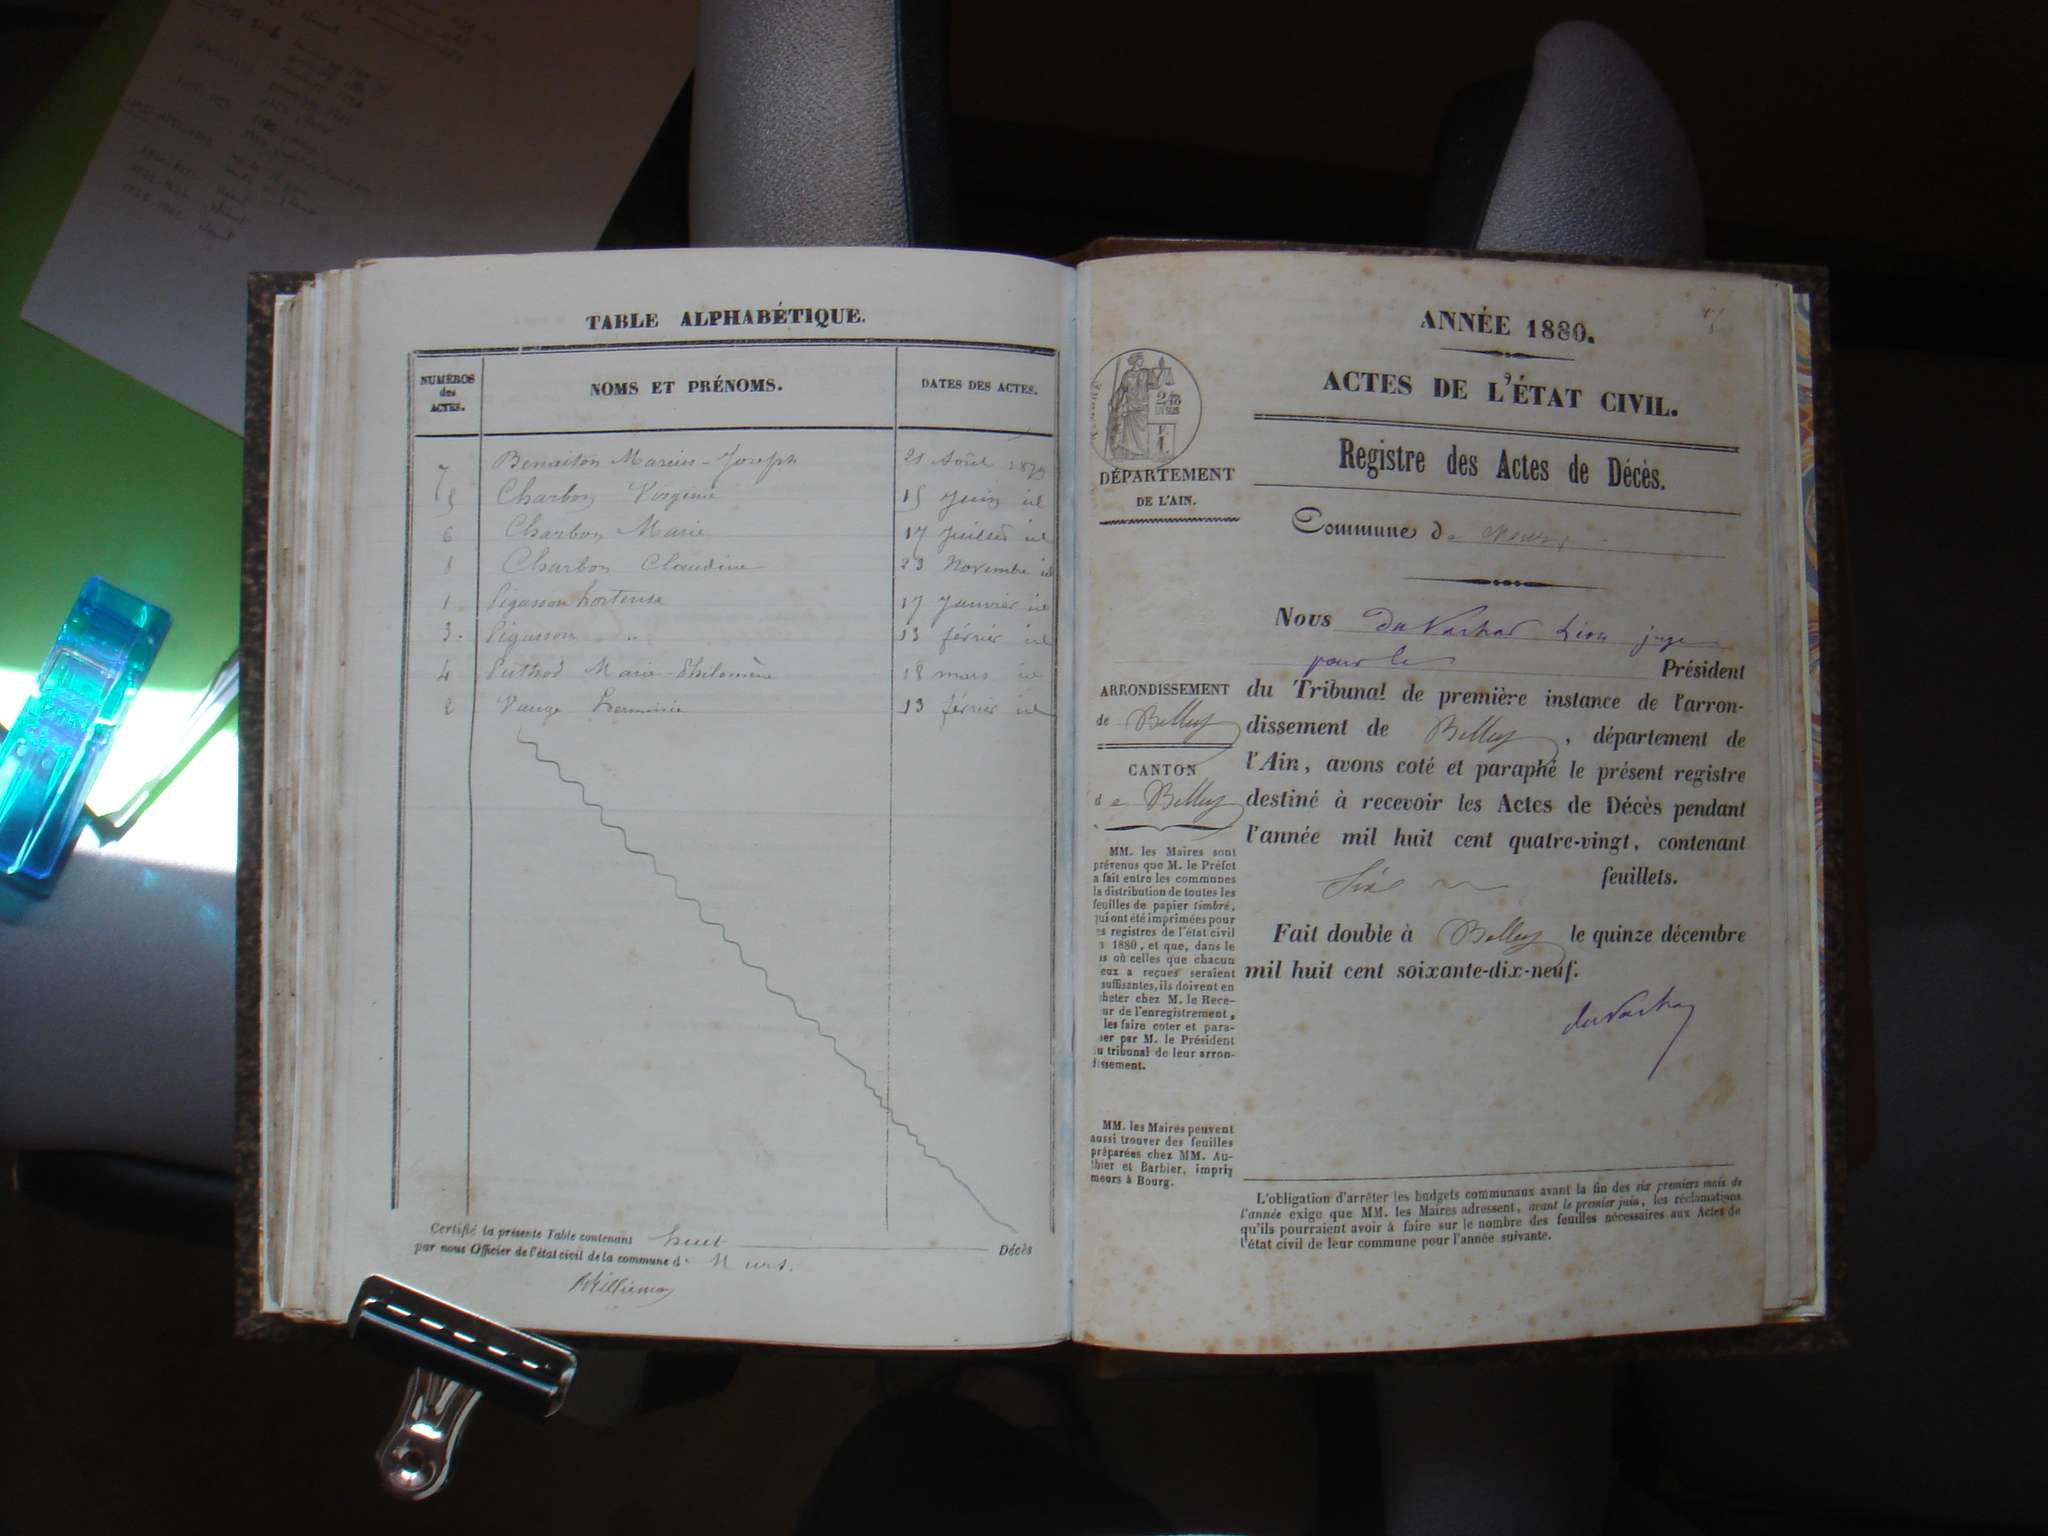 TABLE ALPHABÉTIQUE.
NUMÉROS des ACTES.
NOMS ET PRÉNOMS.
DATES DES ACTES.
7 Benaiton Marius-Joseph 21 Août 1879
5 Charbon Virginie 15 Juin id
6 Charbon Marie 17 Juillet id
8 Charbon Claudine 23 Novembre id
1 Pigasson hortense 17 Janvier id
3. Pigasson " 13 février id
4 Marie-Philomène 18 mars id
2 herminie 13 février id
Certifié la présente Table contenant huit Décès
par nous Officier de l'état civil de la commune de Murs.
ANNÉE 1880.
ACTES DE L'ÉTAT CIVIL.
Registre des Actes de Décès.
DÉPARTEMENT
DE L'AIN.
Commune de Murs
Nous Léon juge
pour le Président
du Tribunal de première instance de l'arron-
dissement de Belley, département de
l'Ain, avons coté et paraphé le présent registre
destiné à recevoir les Actes de Décès pendant
l'année mil huit cent quatre-vingt, contenant
Six feuillets.
Fait double à Belley le quinze décembre
mil huit cent soixante-dix-neuf.
ARRONDISSEMENT
de Belley
CANTON
de Belley
MM. les Maires sont
prévenus que M. le Préfet
a fait entre les communes
la distribution de toutes les
feuilles de papier timbré,
qui ont été imprimées pour
es registres de l'état civil
1880, et que, dans le
as où celles que chacun
eux a reçues seraient
suffisantes, ils doivent en
cheter chez M. le Rece-
ur de l'enregistrement,
les faire coter et para-
her par M. le Président
u tribunal de leur arron-
dissement.
MM. les Maires peuvent
aussi trouver des feuilles
préparées chez MM. Au-
thier et Barbier, impri
meurs à Bourg.
L'obligation d'arrêter les budgets communaux avant la fin des six premiers mois de
l'année exige que MM. les Maires adressent, avant le premier juin, les réclamations
qu'ils pourraient avoir à faire sur le nombre des feuilles nécessaires aux Actes de
l'état civil de leur commune pour l'année suivante.